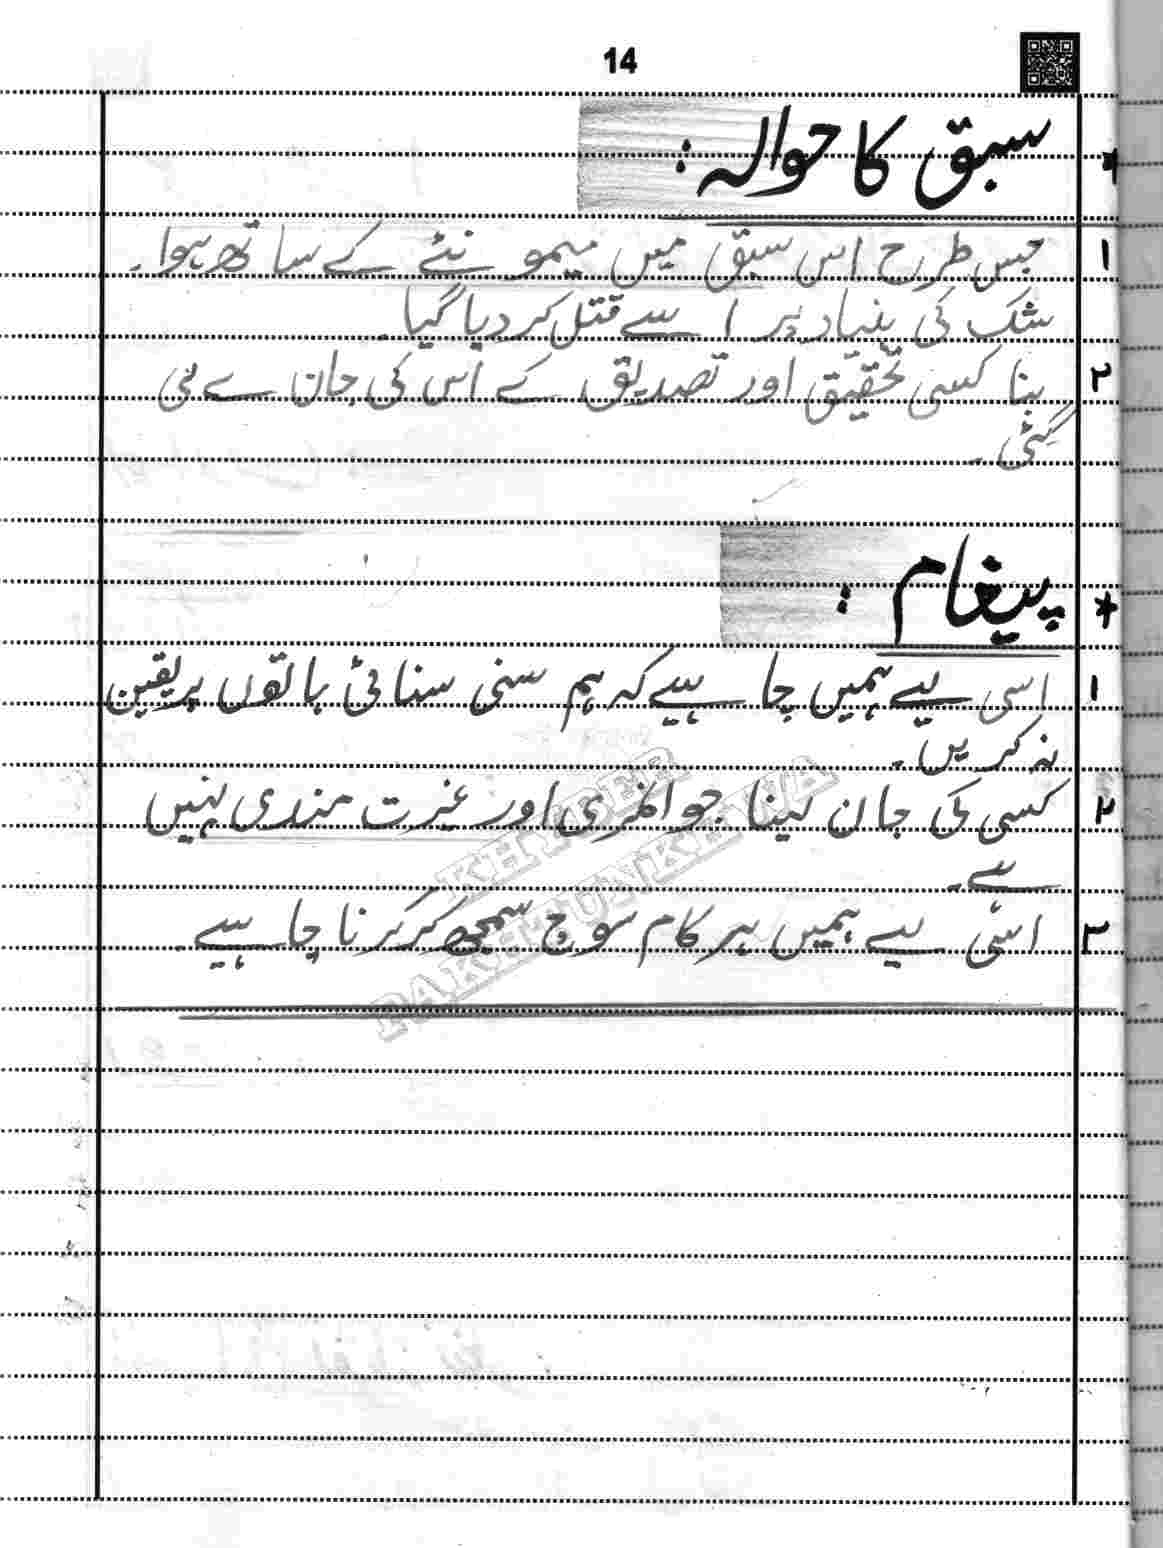 14
* سبق کا حوالہ :
۱ جس طرح اس سبق میں میمونئے کے ساتھ ہوا۔
شک کی بنیاد پر اسے قتل کر دیا گیا۔
۲ بنا کسی تحقیق اور تصدیق کے اس کی جان لے لی
گئی۔
* پیغام :
۱ اسی لیے ہمیں چاہیے کہ ہم سنی سنائی باتوں پر یقین
نہ کریں۔
۲ کسی کی جان لینا جوانمردی اور غیرت مندی نہیں
ہے۔
۳ اسی لیے ہمیں ہر کام سوچ سمجھ کر کرنا چاہیے۔
KHYBER
PAKHTUNKHWA